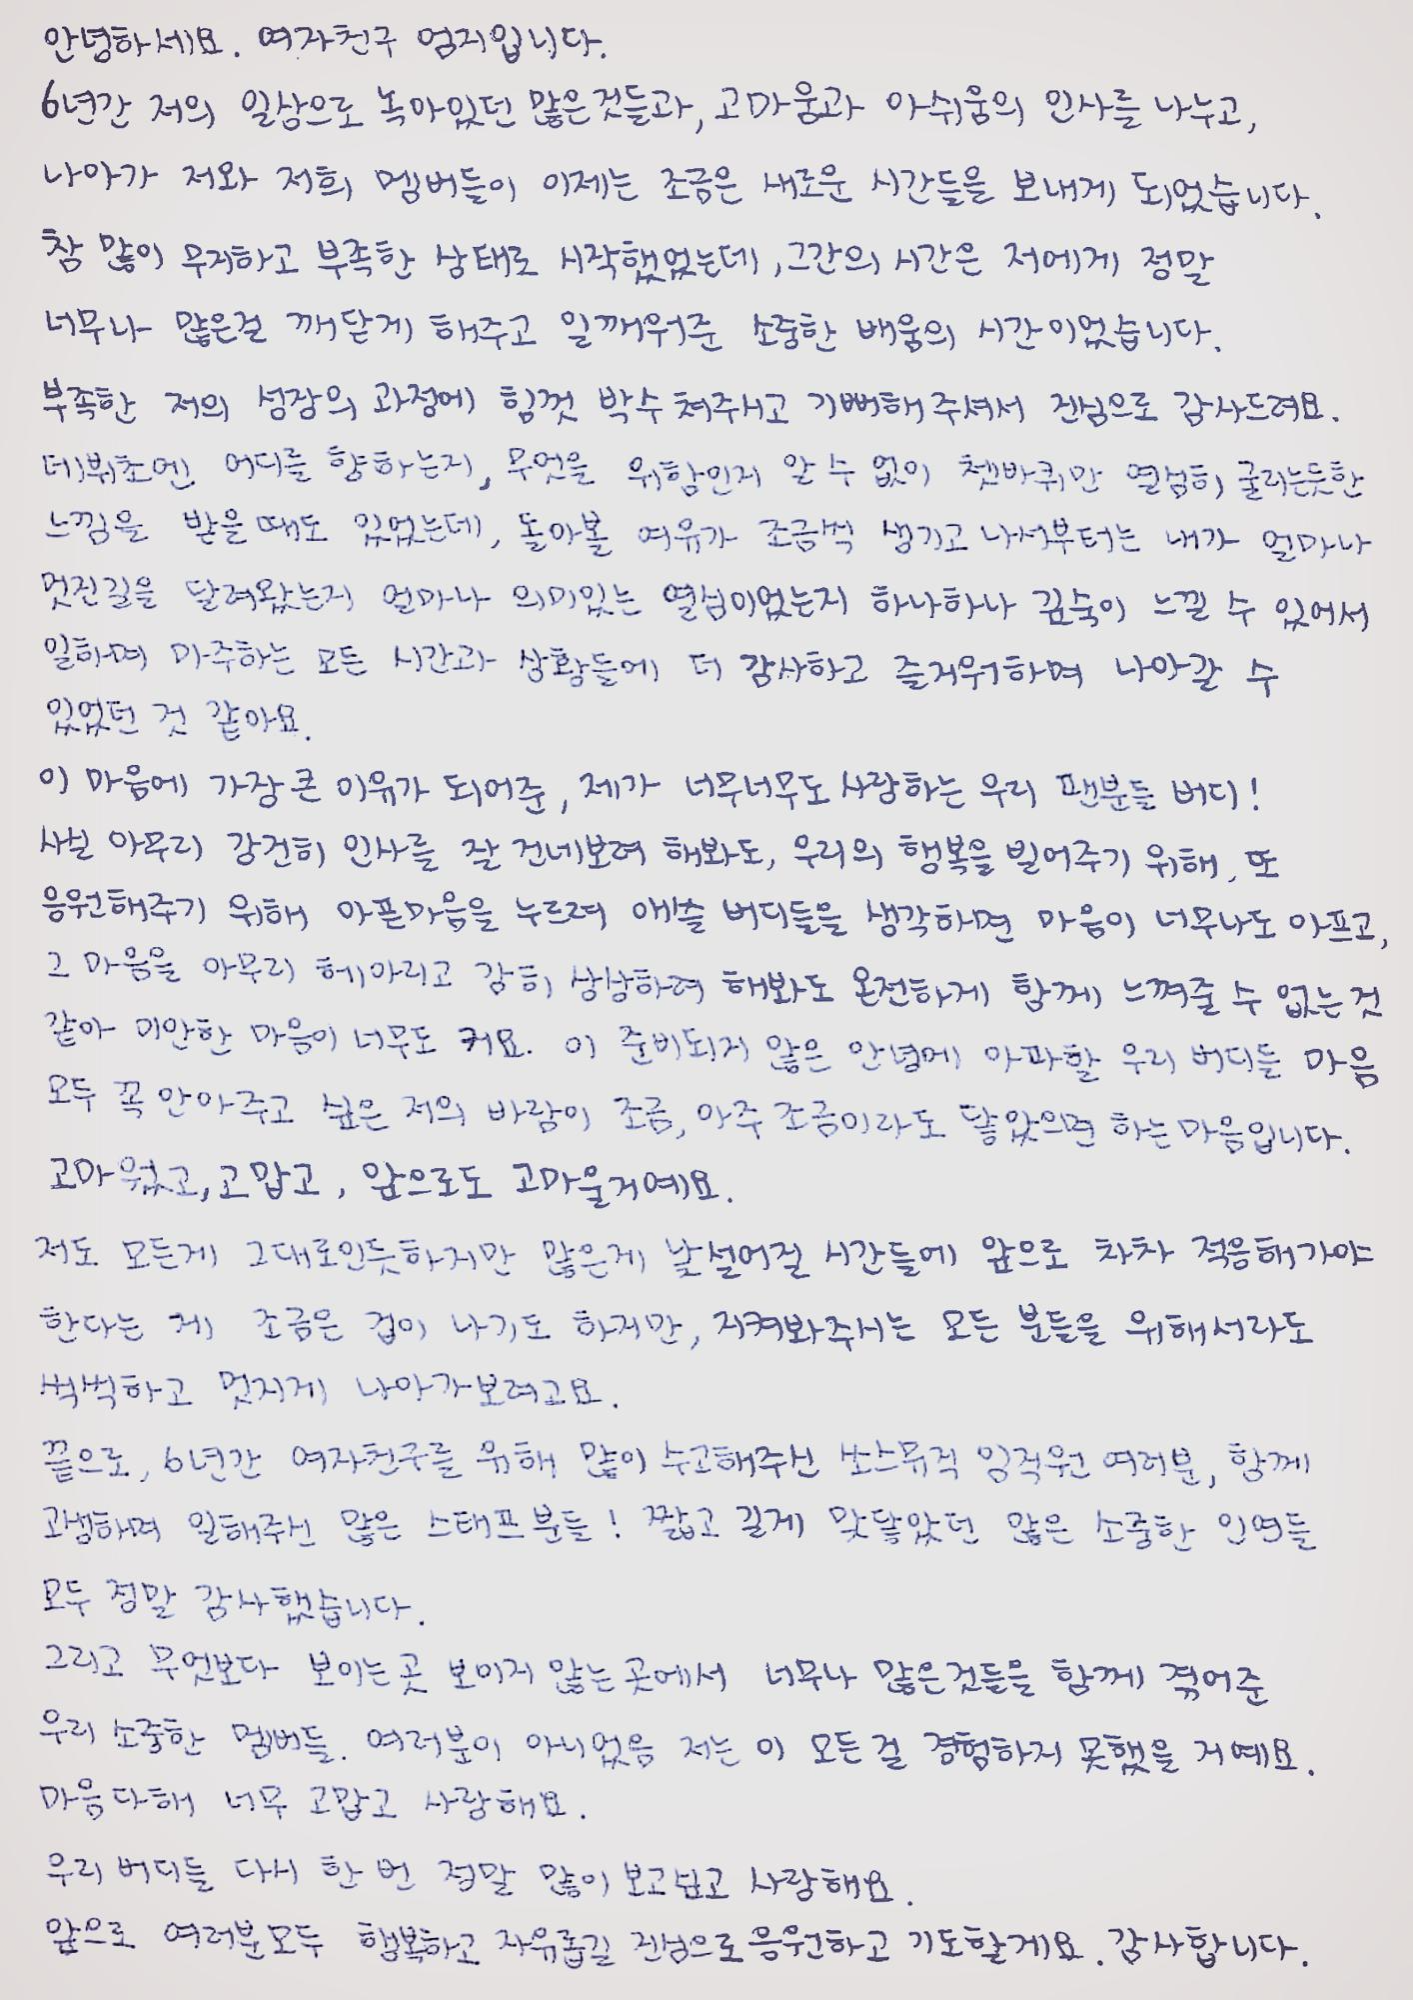 안녕하세요. 여자친구 엄지입니다.
6년간 저의 일상으로 녹아있던 많은것들과, 고마움과 아쉬움의 인사를 나누고,
나아가 저와 저희 멤버들이 이제는 조금은 새로운 시간들을 보내게 되었습니다.
참 많이 무지하고 부족한 상태로 시작했었는데, 그간의 시간은 저에게 정말
너무나 많은걸 깨닫게 해주고 일깨워준 소중한 배움의 시간이었습니다.
부족한 저의 성장의 과정에 힘껏 박수 쳐주시고 기뻐해주셔서 진심으로 감사드려요.
데뷔초엔 어디를 향하는지, 무엇을 위함인지 알 수 없이 쳇바퀴만 열심히 굴리는듯한
느낌을 받을때도 있었는데, 돌아볼 여유가 조금씩 생기고 나서부터는 내가 얼마나
멋진길을 달려왔는지 얼마나 의미있는 열심이었는지 하나하나 깊숙이 느낄 수 있어서
일하며 마주하는 모든 시간과 상황들에 더 감사하고 즐거워하며 나아갈 수
있었던 것 같아요.
이 마음에 가장 큰 이유가 되어준, 제가 너무너무도 사랑하는 우리 팬분들 버디!
사실 아무리 강건히 인사를 잘 건네보려 해봐도, 우리의 행복을 빌어주기 위해, 또
응원해주기 위해 아픈마음을 누르려 애쓸 버디들을 생각하면 마음이 너무나도 아프고,
그 마음을 아무리 헤아리고 감히 상상하려 해봐도 온전하게 함께 느껴줄 수 없는것
같아 미안한 마음이 너무도 커요. 이 준비되지 않은 안녕에 아파할 우리 버디들 마음
모두 꼭 안아주고 싶은 저의 바람이 조금, 아주 조금이라도 닿았으면 하는 마음입니다.
고마웠고, 고맙고, 앞으로도 고마울거예요.
저도 모든게 그대로인듯하지만 많은게 낯설어질 시간들에 앞으로 차차 적응해가야
한다는 게 조금은 겁이 나기도 하지만, 지켜봐주시는 모든 분들을 위해서라도
씩씩하고 멋지게 나아가보려고요.
끝으로, 6년간 여자친구를 위해 많이 수고해주신 쏘스뮤직 임직원 여러분, 함께
고생하며 일해주신 많은 스태프분들! 짧고 길게 맞닿았던 많은 소중한 인연들
모두 정말 감사했습니다.
그리고 무엇보다 보이는곳 보이지 않는곳에서 너무나 많은것들을 함께 겪어준
우리 소중한 멤버들. 여러분이 아니었음 저는 이 모든걸 경험하지 못했을 거예요.
마음다해 너무 고맙고 사랑해요.
우리 버디들 다시 한 번 정말 많이 보고싶고 사랑해요.
앞으로 여러분모두 행복하고 자유롭길 진심으로 응원하고 기도할게요. 감사합니다.